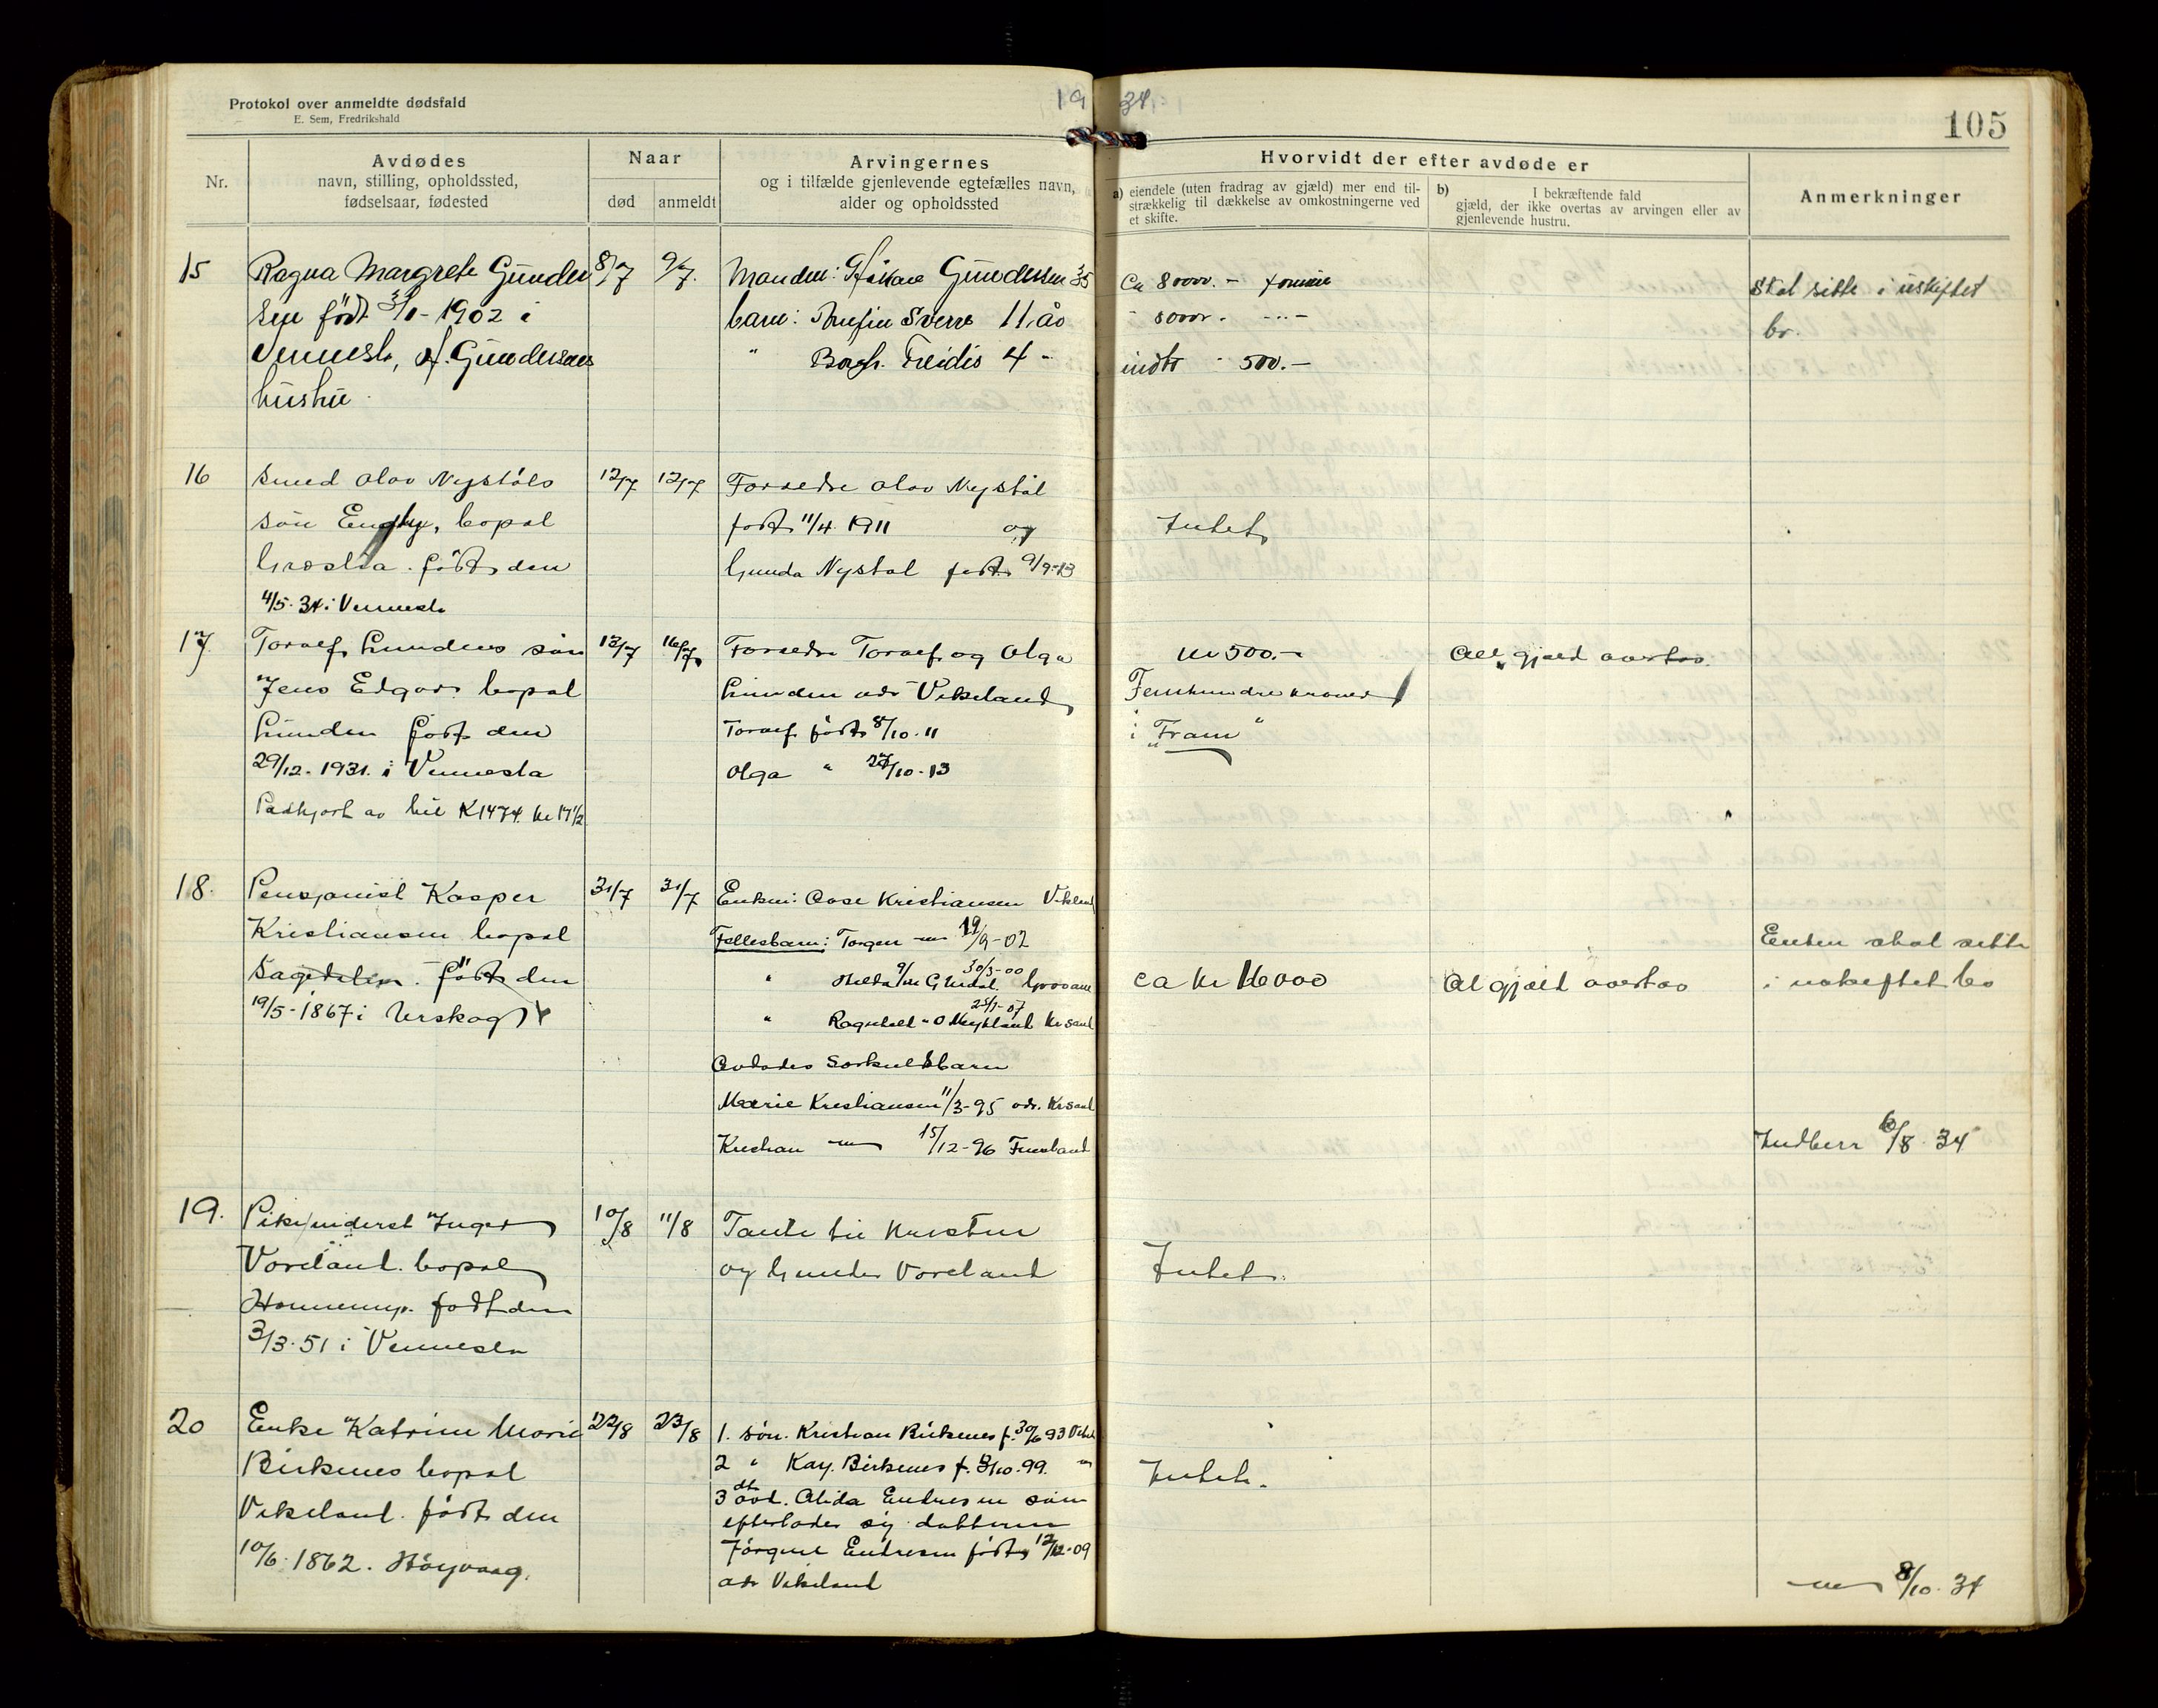 Protokol over anmeldte dødsfald
E. Sem, Fredrikshald
1934
105
Nr.
Avdødes
navn, stilling, opholdssted,
fødselsaar, fødested
Naar
død
anmeldt
Arvingernes
og i tilfælde gjenlevende egtefælles navn,
alder og opholdssted
Hvorvidt der efter avdøde er
a) eiendele (uten fradrag av gjæld) mer end til-
strækkelig til dækkelse av omkostningerne ved
et skifte.
b) I bekræftende fald
gjæld, der ikke overtas av arvingen eller av
gjenlevende hustru.
Anmerkninger
15
Ragna Margrete Gunder
sen født 3/1-1902 i
Vennesla, Gundersens
hustru
8/7
9/7.
Manden: Gundersen 35
barn: Sverre 11 år
" 4 -
Ca 8000.-
indb 500.-
Skal sitte i uskiftet
bo.
16
Smed Olav Nystøls
søn bopæl
født den
4/5. 34 i Vennesla
12/7
12/7
Forældre Olav Nystøl
født 11/4. 1911 og
Gunda Nystøl født 9/9-13
Intet
17
Toralf Lundens søn
Jens Edgar bopæl
Lunden født den
29/12. 1931. i Vennesla
Paakjørt av bil K1474. kl 17½
13/7
16/7
Forældre Toralf og Olga
Lunden adr Vikeland
Toralf født 8/10. 11
Olga " 27/10. 13
kr 500.-
Femhundre kroner
i "Fram"
All gjæld overtas.
18.
Pensjonist Kasper
Kristiansen bopæl
født den
19/5-1867 i
31/7
31/7
Enken: Aase Kristiansen Vikland
Fellesbarn: Torger 19/9-02
" Hilda 30/3-00
" Ragnhild 25/1-07 Krsand
Avdødes særkulsbarn
Marie Kristiansen 11/3-95 adr. Krsand
Kristian 15/12-96
ca kr 16000
Al gjæld overtas
Enken skal sitte
i uskiftet bo
Indberr 6/8. 34
19.
Inger
Voreland. bopæl
født den
3/3. 51 i Vennesla
10/8
11/8
Tante til Kristen
og Gunder Voreland
Intet.
20
Enke Katrine Marie
Birkenes bopæl
Vikeland. født den
10/6. 1862. Høyvaag.
22/8
23/8
1. søn. Kristian Birkenes f. 30/6 93
2 " Kay. Birkenes f. 3/10. 99.
3 dt avd. Alida Endresen som
efterlader sig datteren
Jørgine Endresen født 12/12-09
adr Vikeland
Intet.
8/10. 34